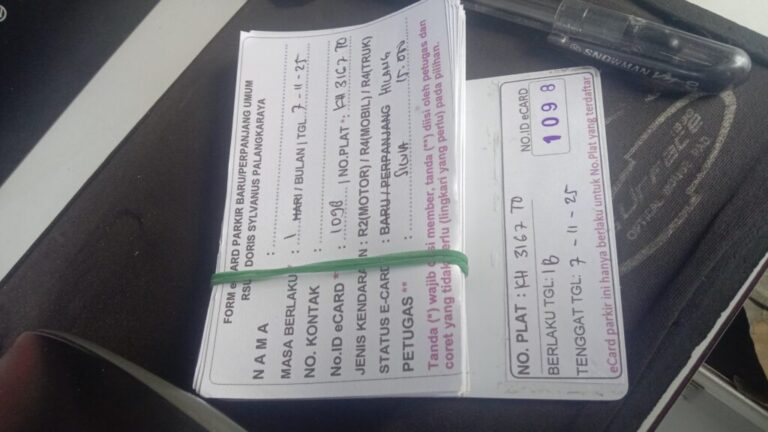 FORM eCARD PARKIR BARU/PERPANJANG UMUM
RSUD DORIS SYLVANUS PALANGKARAYA
N A M A :
MASA BERLAKU * : 1 HARI / BULAN | TGL. 7 - 11 - 25
NO. KONTAK :
No.ID eCARD * : 1098 | NO.PLAT *: KH 3167 TO
JENIS KENDARAAN : R2(MOTOR) / R4(MOBIL) / R4(TRUK)
STATUS E-CARD : BARU / PERPANJANG HILANG
PETUGAS ** : 15.000
Tanda (*) wajib diisi member, tanda (**) diisi oleh petugas dan
coret yang tidak perlu (lingkari yang perlu) pada pilihan.
NO. PLAT : KH 3167 TO
BERLAKU TGL: 1B
TENGGAT TGL: 7 - 11 - 25
NO.ID eCARD
1098
eCard parkir ini hanya berlaku untuk No.Plat yang terdaftar
SNOWMAN V-